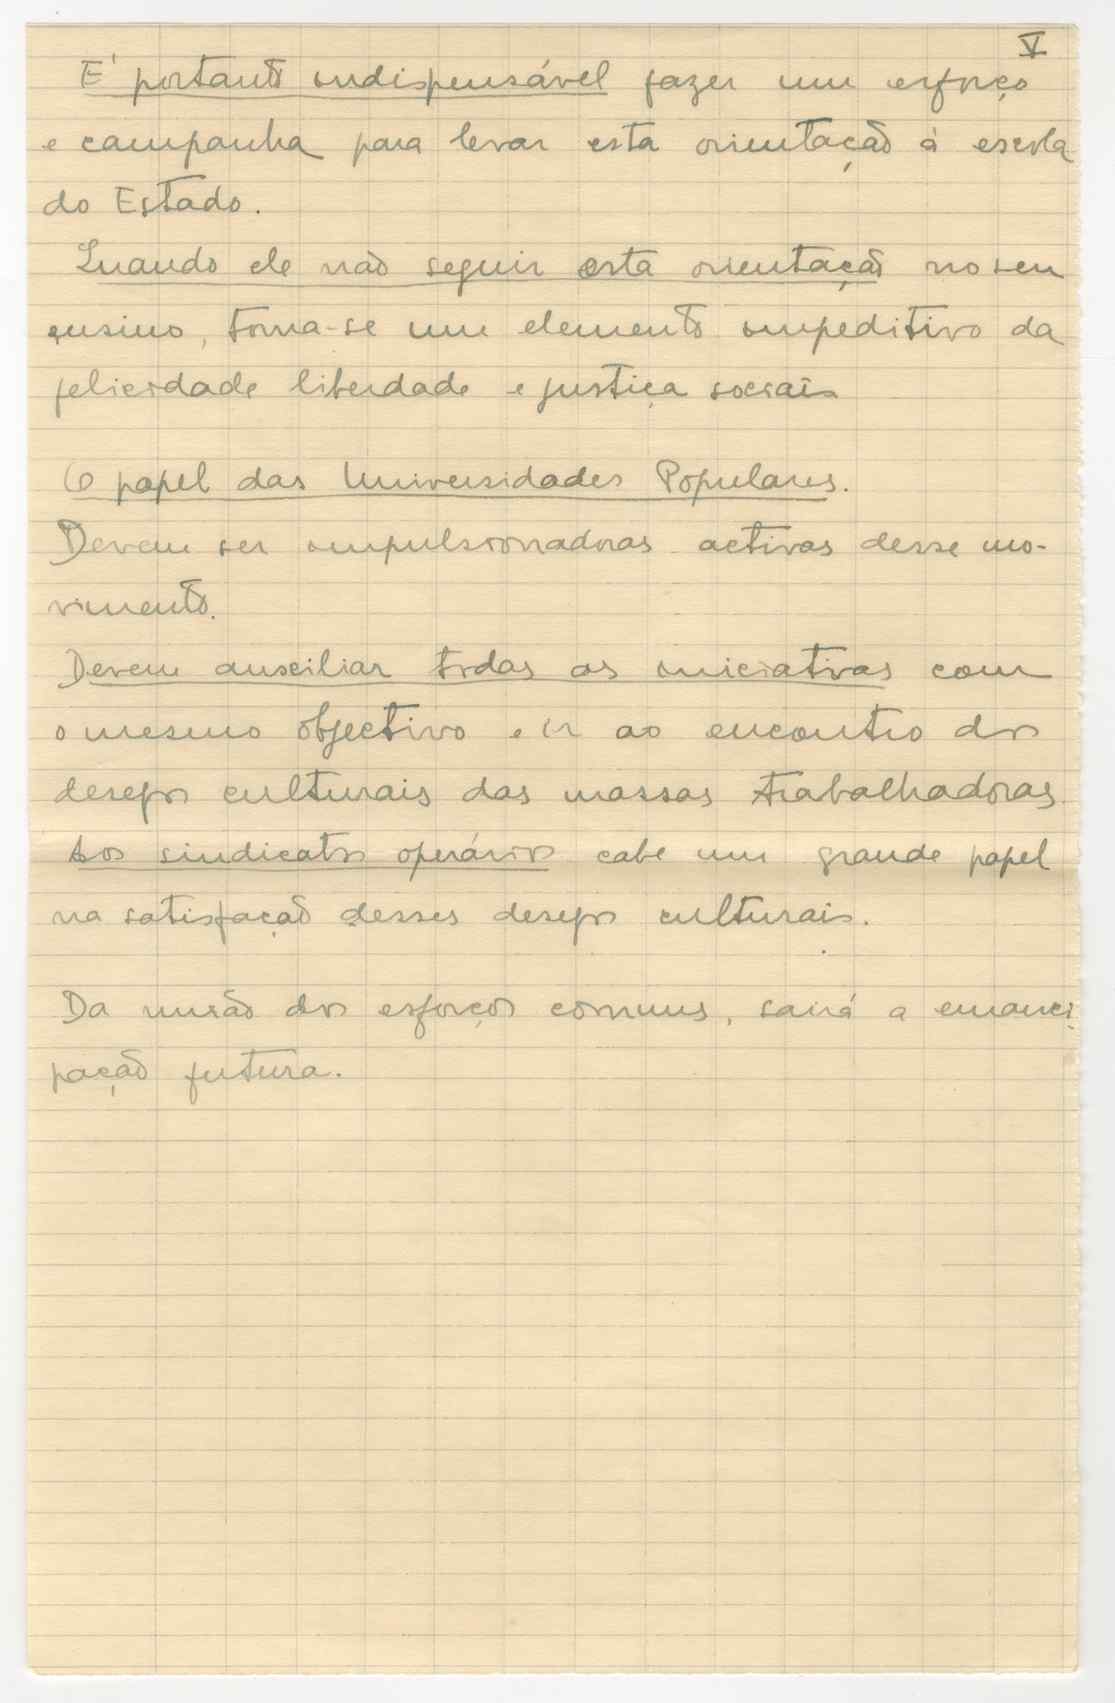 V
É portanto indispensável fazer um esforço
e campanha para levar esta orientação á escola
do Estado.
Quando ele não seguir esta orientação no seu
ensino, torna-se um elemento impeditivo da
felicidade liberdade e justiça sociais
O papel das Universidades Populares.
Devem ser impulsionadoras activas desse mo-
vimento.
Devem auxiliar todas as iniciativas com
o mesmo objectivo e ir ao encontro dos
desejos culturais das massas trabalhadoras
Aos sindicatos operários cabe um grande papel
na satisfação desses desejos culturais.
Da união dos esforços comuns, sairá a emanci
pação futura.